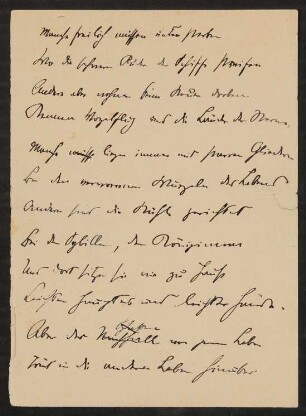 Manche freilich müssen unten sterben
Wo die schweren Ruder der Schiffe streifen
Andere aber wohnen beim Steuer droben
Kennen Vogelflug und die Länder der Sterne.
Manche liegen immer mit schweren Gliedern
Bei den Wurzeln des verworrenen Lebens
Andern sind die Stühle gerichtet
Bei den Sibyllen, den Königinnen
Und dort sitzen sie wie zu Hause
Leichten Hauptes und leichter Hände.
Aber der Schatten von jenen Leben
Fällt in die anderen Leben hinüber